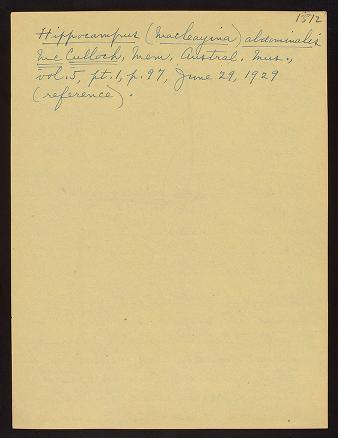 1512
Hippocampus (Macleayina) abdominalis
McCulloch, Mem. Austral. Mus.,
vol. 5, pt. 1, p. 97, June 29, 1929
(reference).